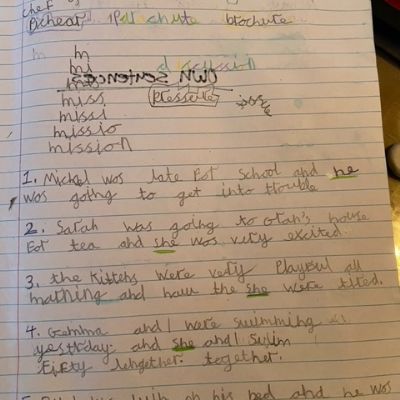 chef
Pichear Par chute brochure
m
m mi
mis
OWN Sentences
miss Pressere
missi
missio
mission
1. Mickel wos late For School and he
wos going to get into trouble
2. Sarah was going to Grah's house
For tea and she wos very excited.
3. the Kittens were very Playful all
marning and haw the she were tired.
4. Gemma and I were swimming
yestrday and she and I swim
Fifty lengether. together.
his bed and he was